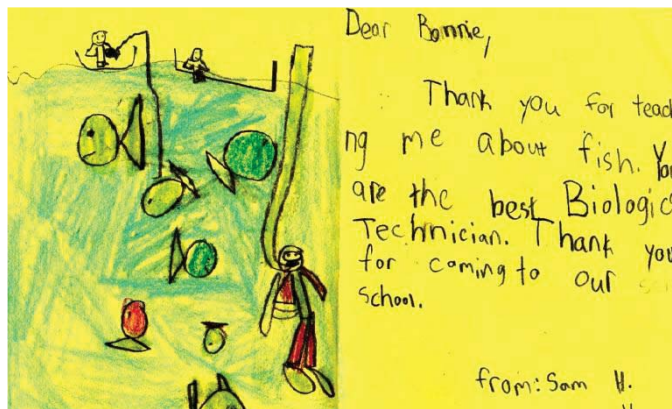 Dear Bonnie,
Thank you for teac
ng me about fish. You
are the best Biologic
Technician. Thank you
for coming to our
school.
from: Sam H.